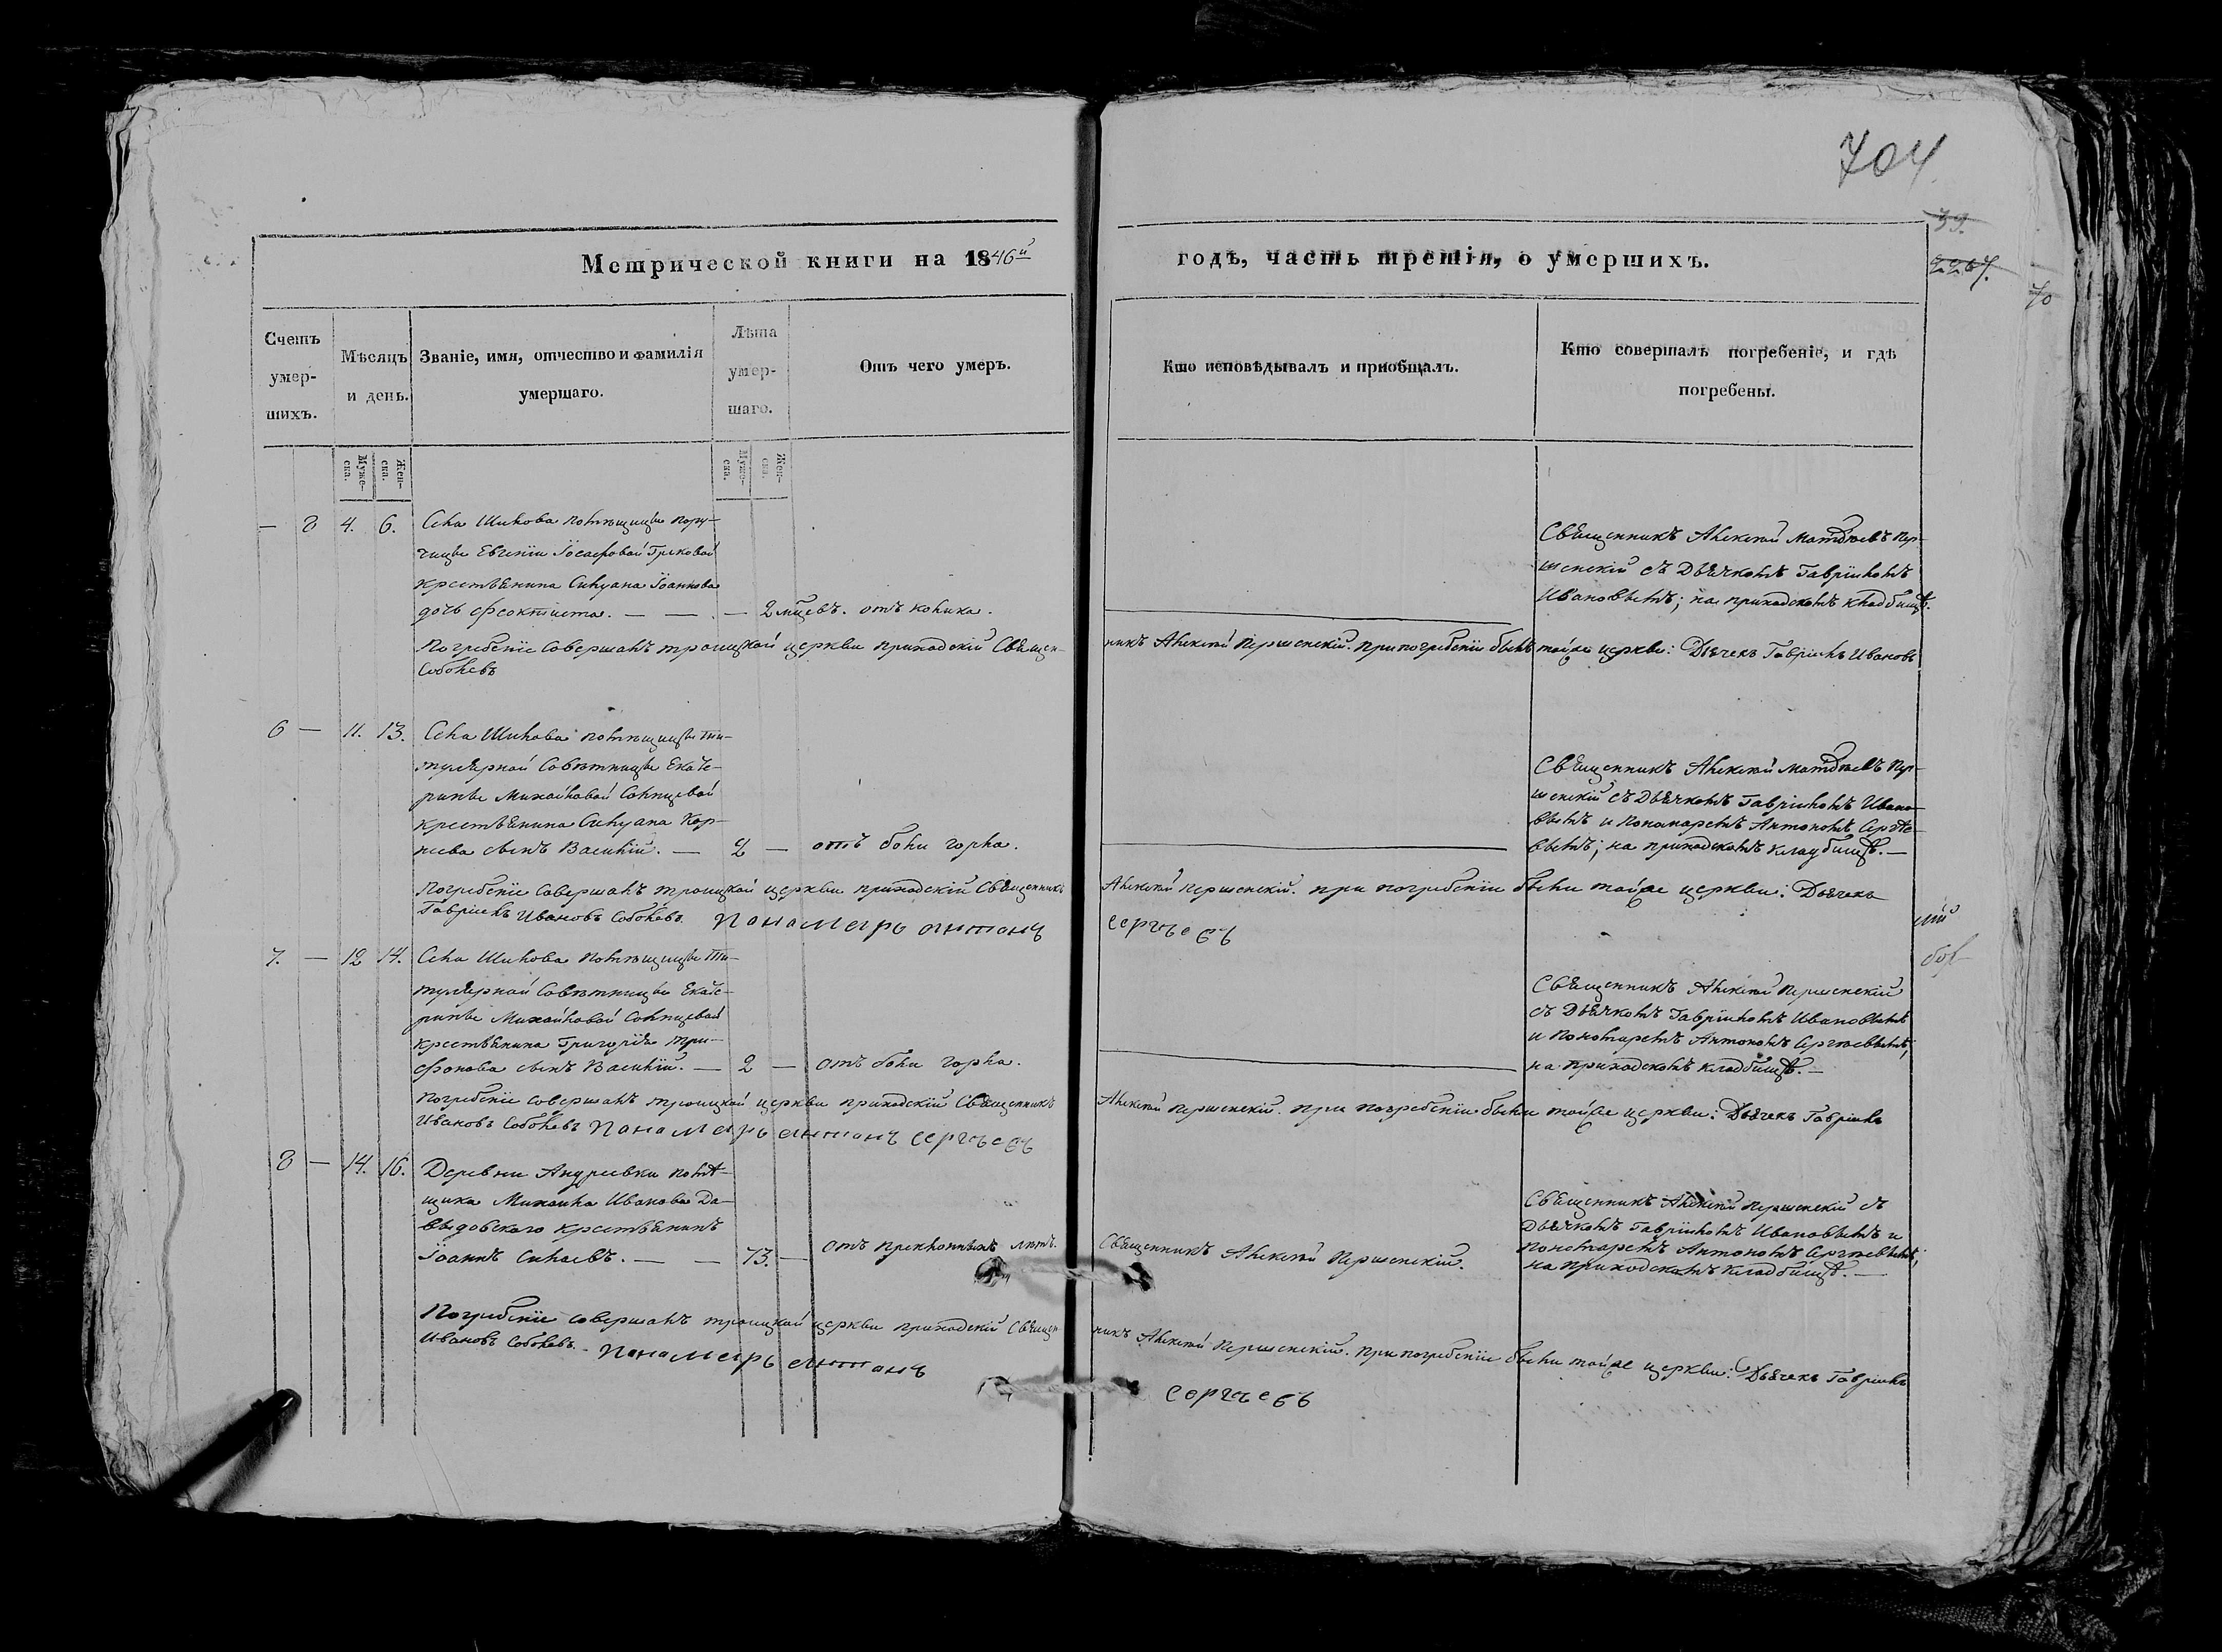 704
39.
2267.
70
Метрической книги на 1846й
годъ, часть третія, о умершихъ.
Счетъ умер-шихъ.
Мѣсяцъ и день.
Званіе, имя, отчество и фамилія умершаго.
Лѣта умер-шаго.
Отъ чего умеръ.
Кто исповѣдывалъ и приобщалъ.
Кто совершалъ погребеніе, и гдѣ погребены.
Муже-ска.
Жен-ска.
Муже-ска.
Жен-ска.
— 8 4. 6. Села Шилова помѣщицы пору-
чицы Евгеніи Іоасафовой Грековой
крестьянина Силуана Іоаннова
дочь Феоктиста. — — — 2 мцевъ. отъ колика.
Священникъ Алексѣй Матвѣевъ Пер-
шенскій съ Дьячкомъ Гавріиломъ
Ивановымъ; на приходскомъ кладбищѣ.
Погребеніе совершалъ троицкой церкви приходскій Священ-
никъ Алексѣй Першенскій. При погребеніи былъ тойже церкви: Дьячекъ Гавріилъ Ивановъ
Соболевъ
6 — 11. 13. Села Шилова помѣщицы Ти-
тулярной Совѣтницы Екате-
рины Михайловой Солнцевой
крестьянина Силуана Кор-
нева сынъ Василій. — 2 — отъ боли горла.
Священникъ Алексѣй Матвѣевъ Пер-
шенскій съ Дьячкомъ Гавріиломъ Ивано-
вымъ и Пономаремъ Антономъ Сергѣе-
вымъ; на приходскомъ кладбищѣ. —
Погребеніе совершалъ троицкой церкви приходскій Священникъ
Алексѣй Першенскій. при погребеніи были тойже церкви: Дьячекъ
Гавріилъ Ивановъ Соболевъ. Панамарь антонъ
сергъевъ
7. — 12 14. Села Шилова помѣщицы Ти-
тулярной Совѣтницы Екате-
рины Михайловой Солнцевой
крестьянина Григорія Три-
фонова сынъ Василій. — 2 — отъ боли горла.
Священникъ Алексѣй Першенскій
съ Дьячкомъ Гавріиломъ Ивановымъ
и Пономаремъ Антономъ Сергѣевымъ;
на приходскомъ кладбищѣ. —
Погребеніе совершалъ троицкой церкви приходскій Священникъ
Алексѣй Першенскій. при погребеніи были тойже церкви: Дьячекъ Гавріилъ
Ивановъ Соболевъ Панамарь антонъ сергъевъ
8 — 14. 16. Деревни Андреевки помѣ-
щика Михаила Иванова Да-
выдовскаго крестьянинъ
Іоаннъ Силаевъ. — — 73. — отъ преклонныхъ лѣтъ.
Священникъ Алексѣй Першенскій.
Священникъ Алексѣй Першенскій съ
Дьячкомъ Гавріиломъ Ивановымъ и
Пономаремъ Антономъ Сергѣевымъ;
на приходскомъ кладбищѣ. —
Погребеніе совершалъ троицкой церкви приходскій Священ-
никъ Алексѣй Першенскій. При погребеніи были тойже церкви: Дьячекъ Гавріилъ
Ивановъ Соболевъ. Панамарь антонъ
сергъевъ